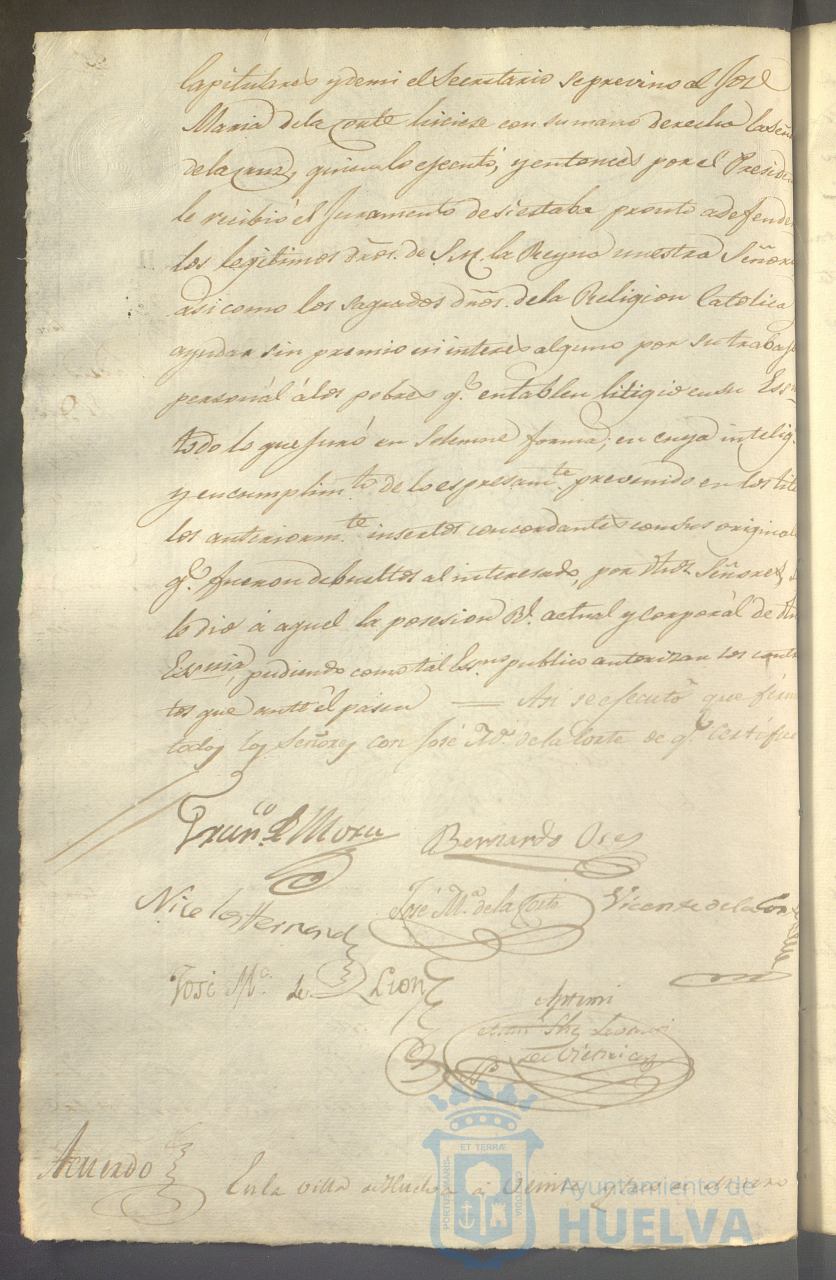 Capitulares y demi el Secretario se previno al José
Maria de la Corte hiciese con su mano derecha la señ
de la cruz, quien lo egecutó, y entonces por el Presid
le recibió el Juramento de si estaba pronto a defende
los legitimos dros. de S.M. la Reyna nuestra Señora
asi como los sagrados dros. de la Religion Catolica
ayudar sin premio ni interes alguno por su trabajo
personál á los pobres q.e entablen litigio en su Ess
todo lo que Juró en Solemne forma; en cuya intelig.
y en cumplim.to de lo espresam.te prevenido en los tit
los anteriorm.te insertos concordantes con sus original
q.e fueron debueltos al interesado, por dhos Señores, se
le dio á aquel la posesion Rl. actual y corporál de dha
Essnia, pudiendo como tal Es.no publico autorizar los contra
tos que ante él pasen — Asi se egecutó que firm
todos los Señores con José M.a de la Corte de q.e Certifico
Fran.co de Mora Bernardo Ores
Nicolas Hernand José M.a de la Corte Vicente de la Cor
José M.a de Leon
Ante mi
Acuerdo
En la villa de Huelva á Veinte y
ET TERRÆ
PORTUS MARIS
CUSTODIA
Ayuntamiento de
HUELVA